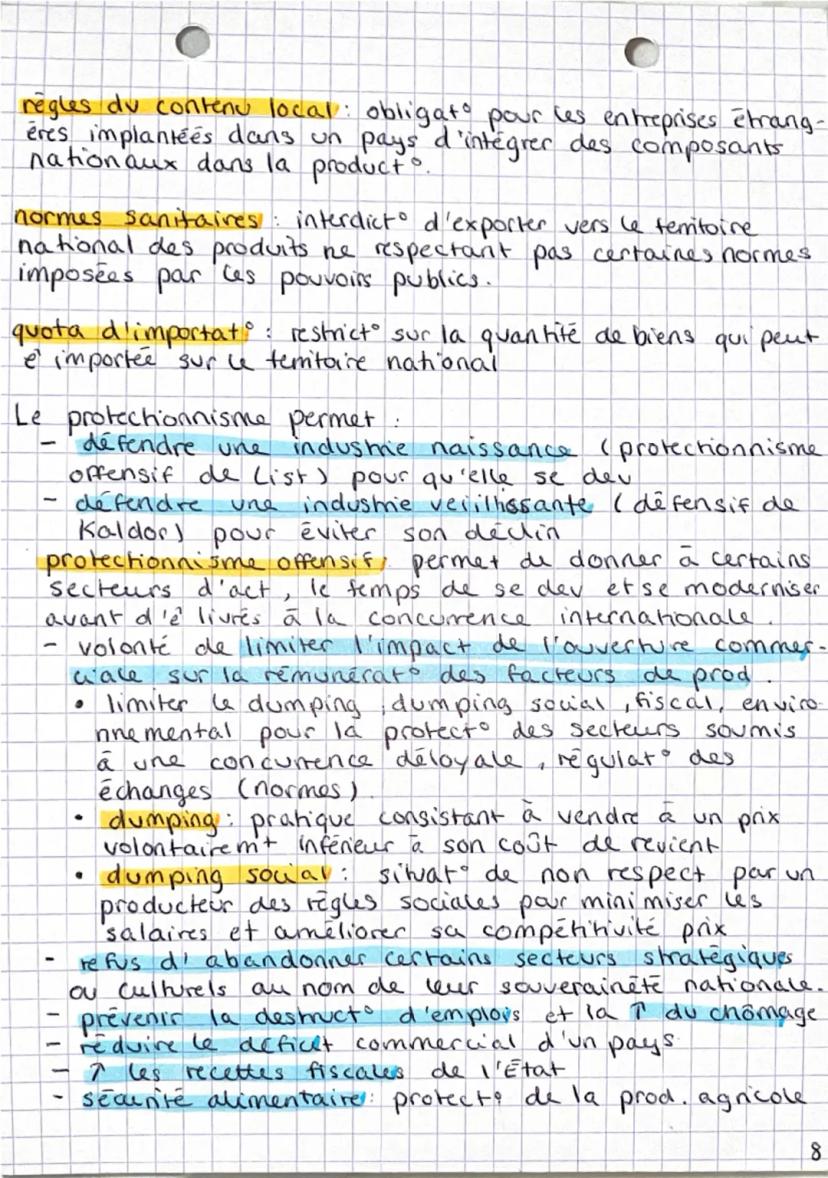 règles du contenu local : obligat° pour les entreprises étrang-
ères implantées dans un pays d'intégrer des composants
nationaux dans la product°.
normes sanitaires : interdict° d'exporter vers le territoire
national des produits ne respectant pas certaines normes
imposées par les pouvoirs publics.
quota d'importat° : restrict° sur la quantité de biens qui peut
ê importée sur le territoire national
Le protectionnisme permet :
- défendre une industrie naissance (protectionnisme
offensif de List) pour qu'elle se dev
- défendre une industrie veiillissante (défensif de
Kaldor) pour éviter son déclin
protectionnisme offensif : permet de donner à certains
secteurs d'act, le temps de se dev et se moderniser
avant d'ê livrés à la concurrence internationale.
- volonté de limiter l'impact de l'ouverture commer-
ciale sur la rémunérat° des facteurs de prod.
• limiter le dumping, dumping social, fiscal, enviro-
nnemental pour la protect° des secteurs soumis
à une concurrence déloyale, régulat° des
échanges (normes).
• dumping : pratique consistant à vendre à un prix
volontairemt inférieur à son coût de revient
• dumping social : situat° de non respect par un
producteur des règles sociales pour minimiser les
salaires et améliorer sa compétitivité prix
- refus d'abandonner certains secteurs stratégiques
ou culturels au nom de leur souveraineté nationale.
- prévenir la destruct° d'emplois et la ↑ du chômage
- réduire le déficit commercial d'un pays
- ↑ les recettes fiscales de l'État
- sécurité alimentaire : protect° de la prod. agricole
8